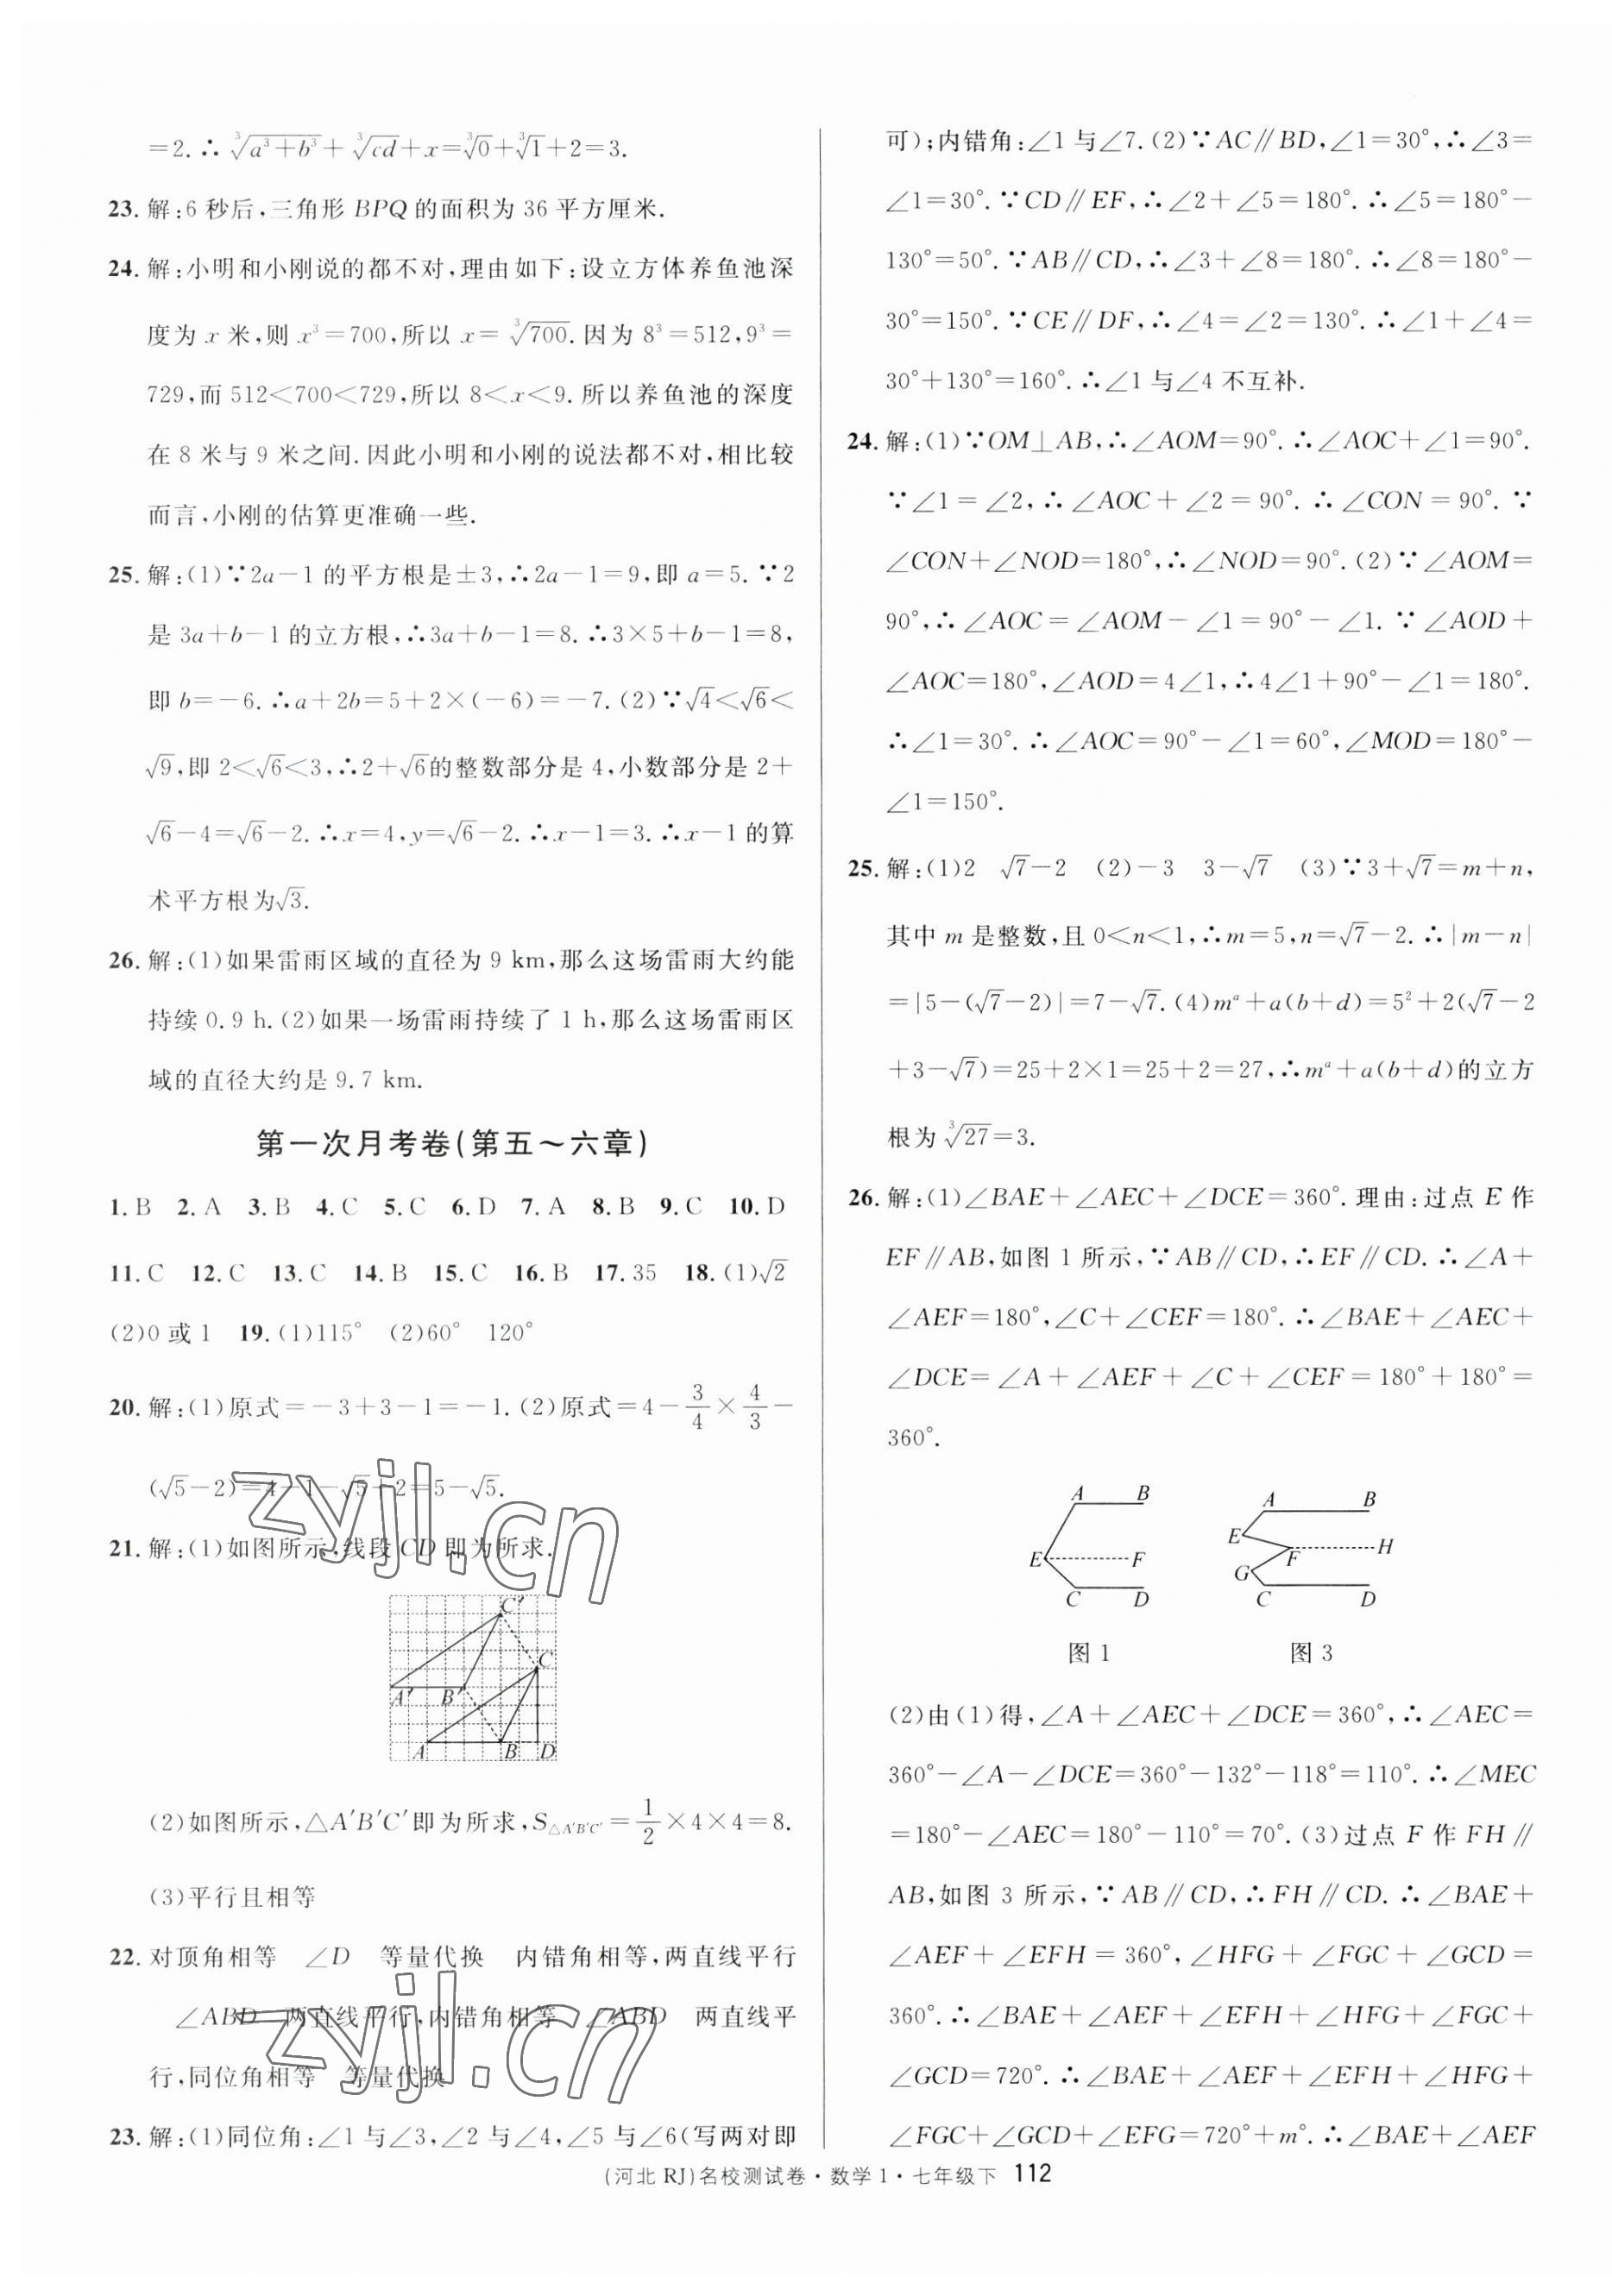 =2.∴∛(a³+b³)+∛(cd)+x=∛0+∛1+2=3.
23.解:6秒后,三角形BPQ的面积为36平方厘米.
24.解:小明和小刚说的都不对,理由如下:设立方体养鱼池深
度为x米,则x³=700,所以x=∛700.因为8³=512,9³=
729,而512<700<729,所以8<x<9.所以养鱼池的深度
在8米与9米之间.因此小明和小刚的说法都不对,相比较
而言,小刚的估算更准确一些.
25.解:(1)∵2a-1的平方根是±3,∴2a-1=9,即a=5.∵2
是3a+b-1的立方根,∴3a+b-1=8.∴3×5+b-1=8,
即b=-6.∴a+2b=5+2×(-6)=-7.(2)∵√4<√6<
√9,即2<√6<3,∴2+√6的整数部分是4,小数部分是2+
√6-4=√6-2.∴x=4,y=√6-2.∴x-1=3.∴x-1的算
术平方根为√3.
26.解:(1)如果雷雨区域的直径为9 km,那么这场雷雨大约能
持续0.9 h.(2)如果一场雷雨持续了1 h,那么这场雷雨区
域的直径大约是9.7 km.
第一次月考卷(第五~六章)
1.B 2.A 3.B 4.C 5.C 6.D 7.A 8.B 9.C 10.D
11.C 12.C 13.C 14.B 15.C 16.B 17.35 18.(1)√2
(2)0或1 19.(1)115° (2)60° 120°
20.解:(1)原式=-3+3-1=-1.(2)原式=4-3/4×4/3-
(√5-2)=4-1-√5+2=5-√5.
21.解:(1)如图所示,线段CD即为所求.
C′
C
A′ B′
A B D
(2)如图所示,△A′B′C′即为所求,S△A′B′C′=1/2×4×4=8.
(3)平行且相等
22.对顶角相等 ∠D 等量代换 内错角相等,两直线平行
∠ABD 两直线平行,内错角相等 ∠ABD 两直线平
行,同位角相等 等量代换
23.解:(1)同位角:∠1与∠3,∠2与∠4,∠5与∠6(写两对即
可);内错角:∠1与∠7.(2)∵AC∥BD,∠1=30°,∴∠3=
∠1=30°.∵CD∥EF,∴∠2+∠5=180°.∴∠5=180°-
130°=50°.∵AB∥CD,∴∠3+∠8=180°.∴∠8=180°-
30°=150°.∵CE∥DF,∴∠4=∠2=130°.∴∠1+∠4=
30°+130°=160°.∴∠1与∠4不互补.
24.解:(1)∵OM⊥AB,∴∠AOM=90°.∴∠AOC+∠1=90°.
∵∠1=∠2,∴∠AOC+∠2=90°.∴∠CON=90°.∵
∠CON+∠NOD=180°,∴∠NOD=90°.(2)∵∠AOM=
90°,∴∠AOC=∠AOM-∠1=90°-∠1.∵∠AOD+
∠AOC=180°,∠AOD=4∠1,∴4∠1+90°-∠1=180°.
∴∠1=30°.∴∠AOC=90°-∠1=60°,∠MOD=180°-
∠1=150°.
25.解:(1)2 √7-2 (2)-3 3-√7 (3)∵3+√7=m+n,
其中m是整数,且0<n<1,∴m=5,n=√7-2.∴|m-n|
=|5-(√7-2)|=7-√7.(4)mᵃ+a(b+d)=5²+2(√7-2
+3-√7)=25+2×1=25+2=27,∴mᵃ+a(b+d)的立方
根为∛27=3.
26.解:(1)∠BAE+∠AEC+∠DCE=360°.理由:过点E作
EF∥AB,如图1所示,∵AB∥CD,∴EF∥CD.∴∠A+
∠AEF=180°,∠C+∠CEF=180°.∴∠BAE+∠AEC+
∠DCE=∠A+∠AEF+∠C+∠CEF=180°+180°=
360°.
A B
E F
C D
图1
A B
E
F H
G
C D
图3
(2)由(1)得,∠A+∠AEC+∠DCE=360°,∴∠AEC=
360°-∠A-∠DCE=360°-132°-118°=110°.∴∠MEC
=180°-∠AEC=180°-110°=70°.(3)过点F作FH∥
AB,如图3所示,∵AB∥CD,∴FH∥CD.∴∠BAE+
∠AEF+∠EFH=360°,∠HFG+∠FGC+∠GCD=
360°.∴∠BAE+∠AEF+∠EFH+∠HFG+∠FGC+
∠GCD=720°.∴∠BAE+∠AEF+∠EFH+∠HFG+
∠FGC+∠GCD+∠EFG=720°+m°.∴∠BAE+∠AEF
(河北RJ)名校测试卷·数学1·七年级下 112
zyjl.cn
zyjl.cn